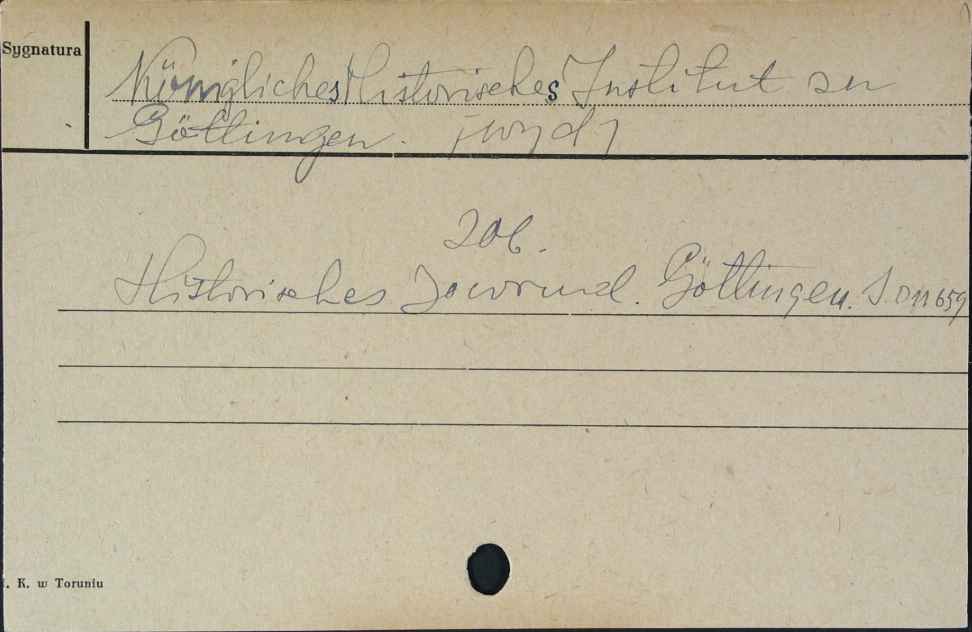 Sygnatura
Königliches Historisches Institut zu
Göttingen. [wyd]
zob.
Historisches Journal. Göttingen. S.011659
. K. w Toruniu